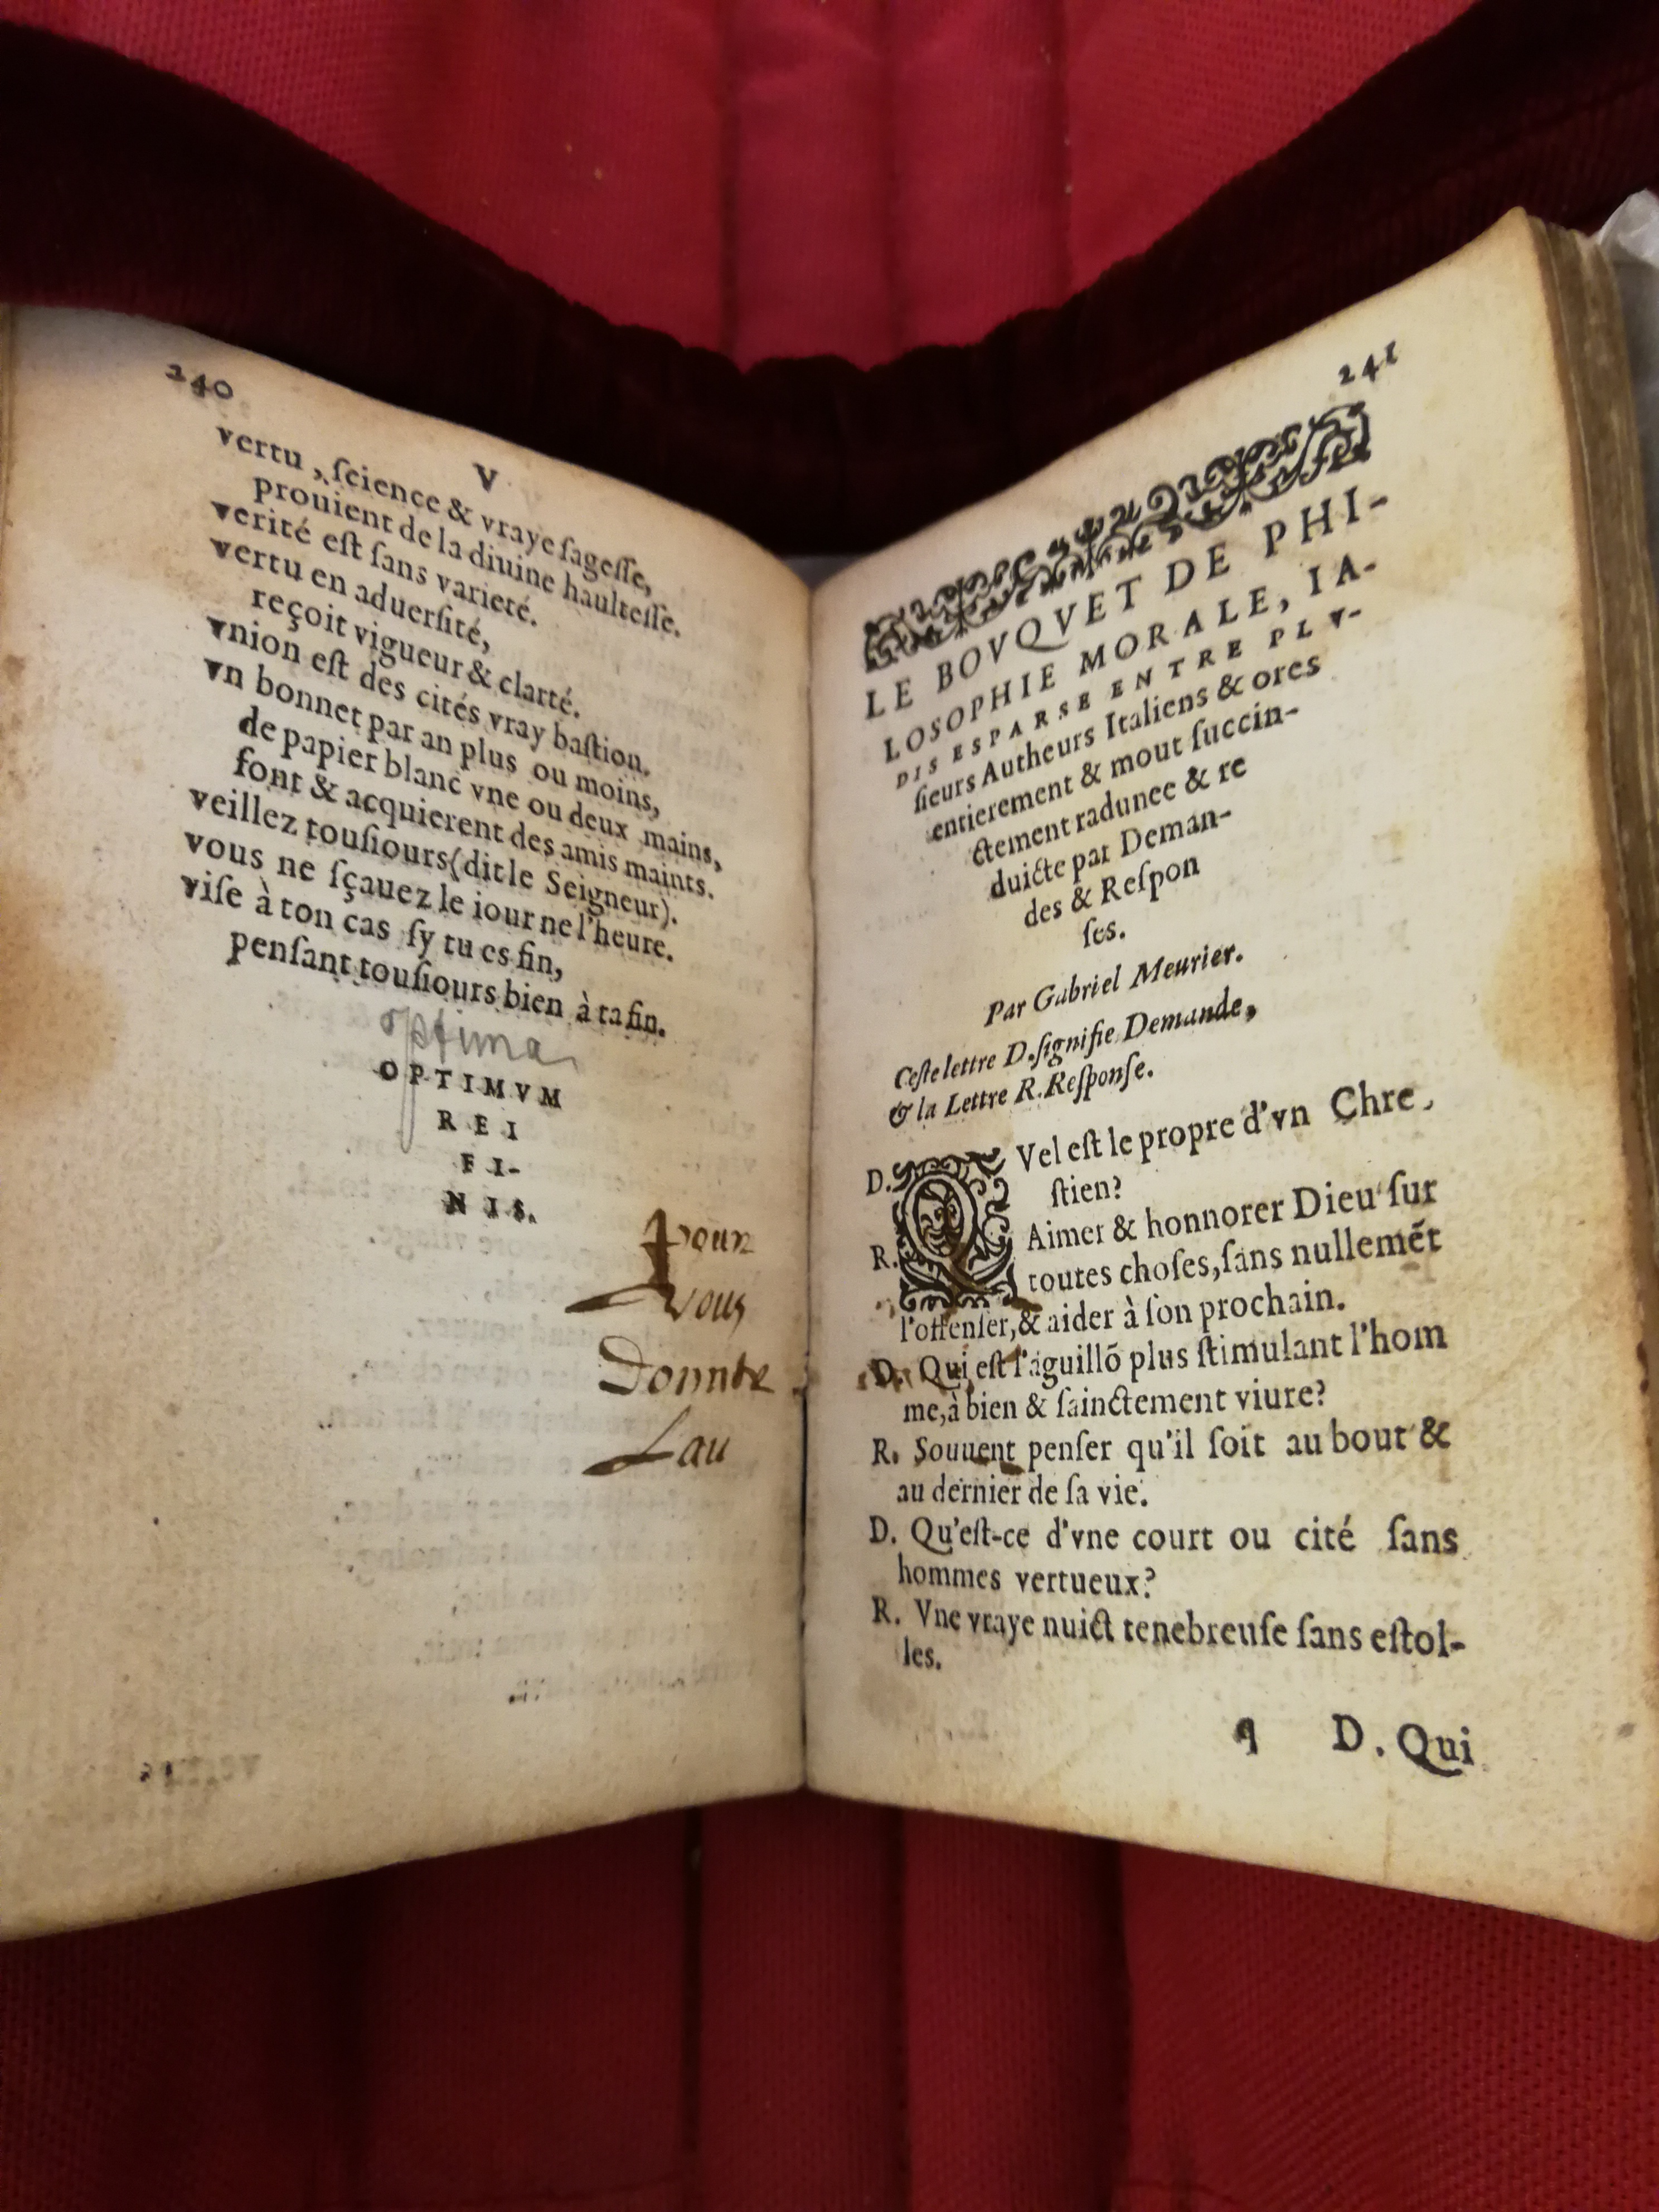 240
V
vertu, ſcience & vraye ſageſſe,
prouient de la diuine haulteſſe.
verité eſt ſans varieté.
vertu en aduerſité,
reçoit vigueur & clarté.
vnion eſt des cités vray baſtion.
vn bonnet par an plus ou moins,
de papier blanc vne ou deux mains,
font & acquierent des amis maints.
veillez touſiours (dit le Seigneur).
vous ne ſçauez le iour ne l'heure.
viſe à ton cas ſy tu es fin,
penſant touſiours bien à ta fin.
optima
OPTIMVM
REI
FI-
NIS.
pour
vous
Donnée
Lau
241
LE BOVQVET DE PHI-
LOSOPHIE MORALE, IA-
DIS ESPARSE ENTRE PLV-
ſieurs Autheurs Italiens & ores
entierement & mout ſuccin-
ctement radunee & re
duicte par Deman-
des & Reſpon
ſes.
Par Gabriel Meurier.
Ceſte lettre D. ſignifie Demande,
& la Lettre R. Reſponſe.
D. QVel eſt le propre d'vn Chre-
ſtien?
R. Aimer & honnorer Dieu ſur
toutes choſes, ſans nullemẽt
l'offenſer, & aider à ſon prochain.
D. Qui eſt l'aguillõ plus ſtimulant l'hom
me, à bien & ſainctement viure?
R. Souuent penſer qu'il ſoit au bout &
au dernier de ſa vie.
D. Qu'eſt-ce d'vne court ou cité ſans
hommes vertueux?
R. Vne vraye nuict tenebreuſe ſans eſtol-
les.
¶ D. Qui